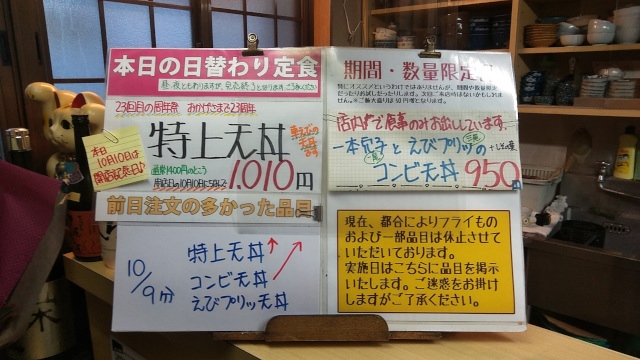 本日の日替わり定食
23回目の周年祭 おかげさまで23周年
本日
10月10日は
開店記念日♪
特上天丼
通常1400円のところ
1,010円
前日注文の多かった品目
10/9分
特上天丼
コンビ天丼
えびプリッツ天丼
期間・数量限定
店内で食事のみお出ししています。
一本穴子とえびプリッツの
コンビ天丼 950円
現在、都合によりフライもの
および一部品目は休止させて
いただいております。
実施日はこちらに品目を掲示
いたします。ご迷惑をお掛け
しますがご了承ください。